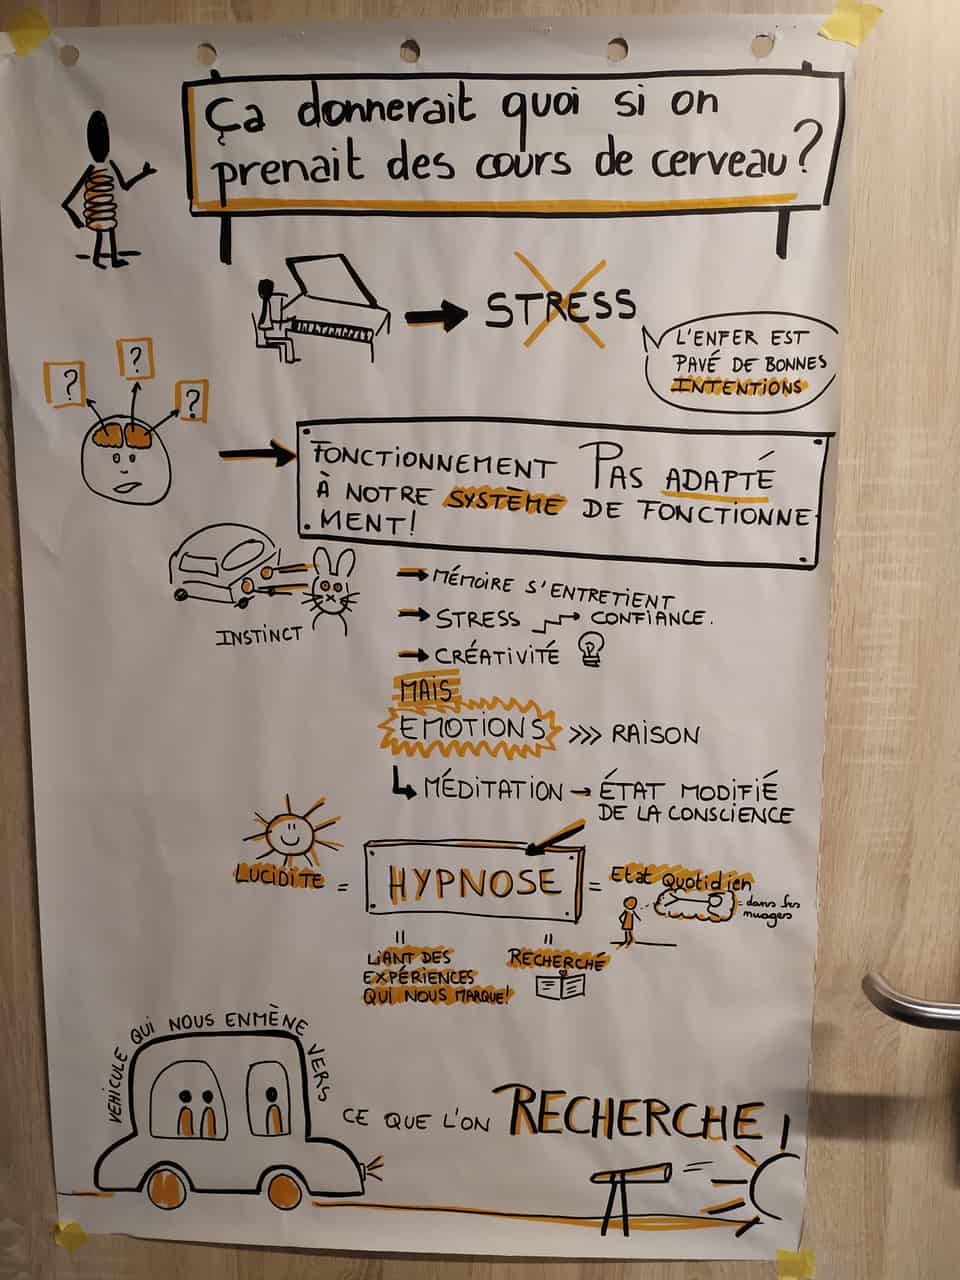 Ça donnerait quoi si on
prenait des cours de cerveau?
STRESS
L'ENFER EST
PAVÉ DE BONNES
INTENTIONS
?
?
?
FONCTIONNEMENT PAS ADAPTÉ
À NOTRE SYSTÈME DE FONCTIONNE
MENT!
INSTINCT
MÉMOIRE S'ENTRETIENT
STRESS CONFIANCE.
CRÉATIVITÉ
MAIS
EMOTIONS >>> RAISON
MÉDITATION → ÉTAT MODIFIÉ
DE LA CONSCIENCE
LUCIDITE = HYPNOSE = Etat Quotidien
= dans les
nuages
=
LIANT DES
EXPÉRIENCES
QUI NOUS MARQUE!
=
RECHERCHÉ
VEHICULE QUI NOUS ENMÈNE VERS
CE QUE L'ON RECHERCHE!